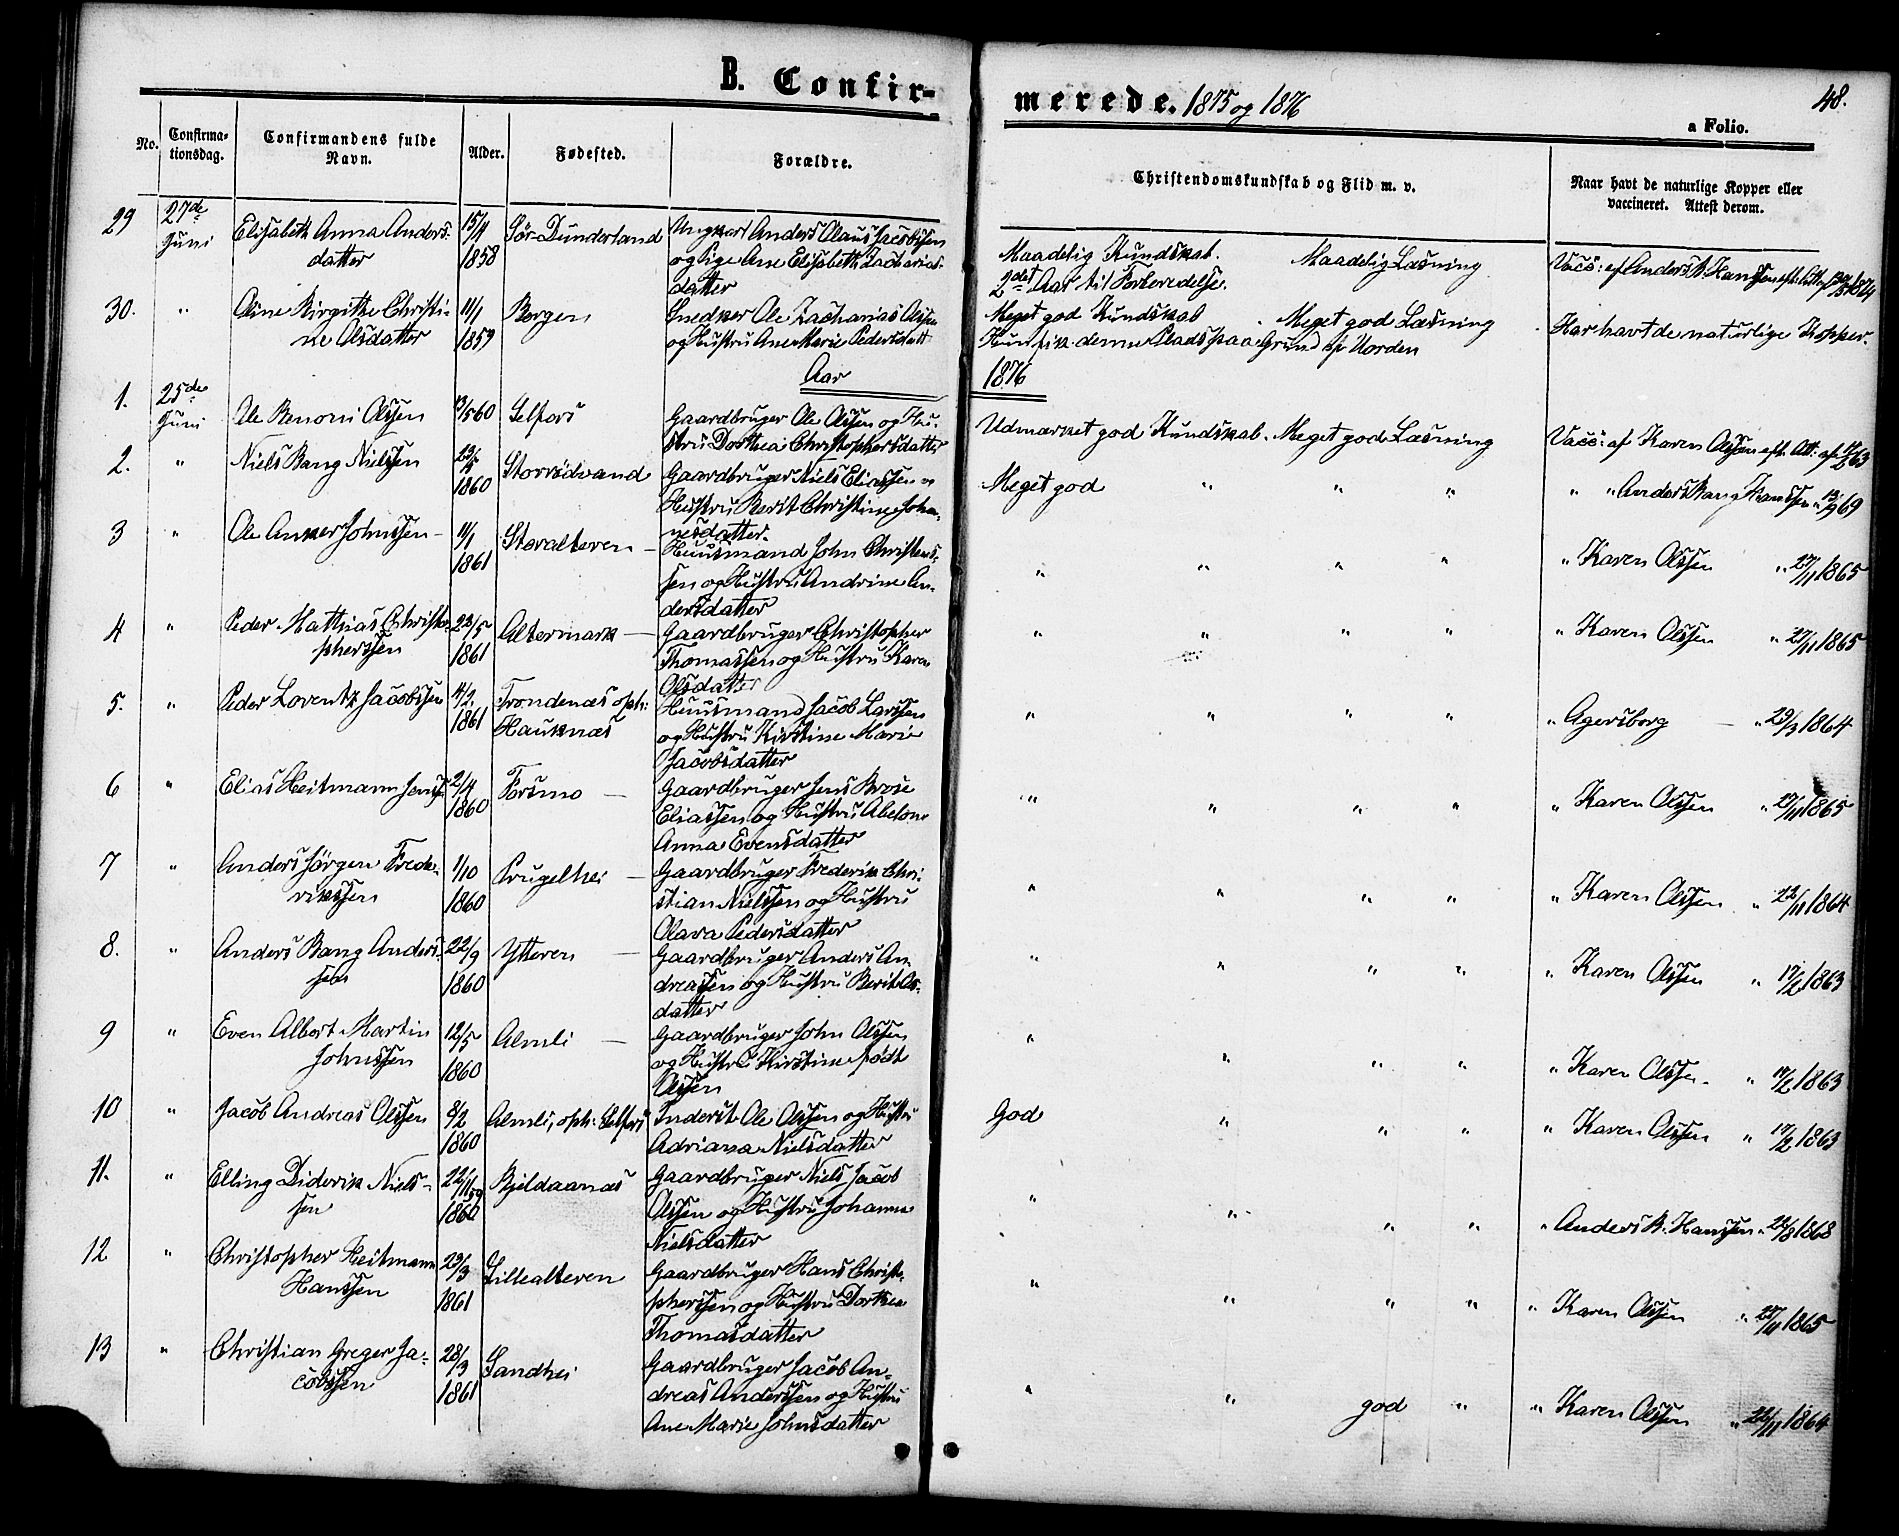 B. Confirmerede. 1875 og 1876
48.
a Folio.
No. Confirmationsdag. Confirmandens fulde Navn. Alder. Fødested. Forældre. Christendomskundskab og Flid m. v. Naar havt de naturlige Kopper eller vaccineret. Attest derom.
29 27de Juni Elisabeth Anna Anders-
datter 15/4 1858 Sør-Dunderland Ungkarl Anders Olaus Jacobssen
og Pige Ane Elisabeth Zacharias-
datter
Maadelig Kundskab. Maadelig Læsning
2det Aar til Forberedelse.
Vacc: af Anders B. Hanssen eft. Att. af 1874
30. " Oline Birgithe Christi-
ne Olsdatter 11/1 1859 Bergen Snedker Ole Zacharias Olssen
og Hustru Ane Marie Pedersdatt
Meget god Kundskab. Meget god Læsning
denne Plads paa Grund af Norden
Har havt de naturlige Kopper.
Aar 1876
1. 25de Juni Ole Benoni Olssen 13/5 60 Selfors Gaardbruger Ole Olssen og Hu-
stru Dorthea Christophersdatter
Udmærket god Kundskab. Meget god Læsning
Vacc: af Karen Olssen eft. Att. af 63
2. " Niels Bang Nielssen 1860 Storrödvand Gaardbruger Niels Eliassen og
Hustru Berit Christine Johan-
nesdatter.
Meget god " " " " " Anders Bang Hanssen " 69
3 " Ole Anker Johnssen - 11/1 1861 Storalteren - Huusmand John Christens-
sen og Hustru Andrine An-
dersdatter
" " " " " Karen Olssen " 27/11 1865
4 " Peder Mathias Christo-
pherssen 23/5 1861 Altermark - Gaardbruger Christopher
Thomassen og Hustru Karen
Olsdatter
" " " " " Karen Olssen " 27/11 1865
5. " Peder Lorentz Jacobssen 4/2 1861 Trondenæs oph:
Hauknæs Huusmand Jacob Larssen
og Hustru Kirstine Marie
Jacobsdatter
" " " " " Agersborg - " 29/3 1864
6 " Elias Heitmann Jenss. 2/4 1860 Forsmo - Gaardbruger Jens Brose
Eliassen og Hustru Abelone
Anna Evensdatter
" " " " " Karen Olssen " 27/11 1865
7 " Anders Jørgen Frede-
rikssen 1/10 1860 Prugelhei - Gaardbruger Frederik Chri-
stian Nielssen og Hustru
Olava Pedersdatter
" " " " " Karen Olssen " 22/11 1864
8. " Anders Bang Anders-
sen 22/9 1860 Ytteren - Gaardbruger Anders An-
dreassen og Hustru Berit Ols-
datter
" " " " " Karen Olssen " 17/2 1863
9 " Even Albert Martin
Johnssen 12/5 1860 Almli - Gaardbruger John Olssen
og Hustru Kirstine født
Olssen
" " " " " Karen Olssen " 17/2 1863
10 " Jacob Andreas Olssen 8/2 1860 Almli, oph: Selfors Inderst Ole Olssen og Hustru
Adriana Nielsdatter
God " " " " Karen Olssen " 17/2 1863
11. " Elling Diderik Niels-
sen 22/11 59 1860 Kjeldaanæs Gaardbruger Niels Jacob
Olssen og Hustru Johanne
Nielsdatter
" " " " " Anders B. Hanssen " 1868
12 " Christopher Heitmann
Hanssen 29/3 1861 Lillealteren Gaardbruger Hans Christo-
pherssen og Hustru Dorthea
Thomasdatter
" " " " " Karen Olssen " 27/11 1865
13 " Christian Greger Ja-
cobssen 28/3 1861 Sandhei Gaardbruger Jacob An-
dreas Anderssen og Hustru
Ane Marie Johnsdatter
" " god " " Karen Olssen " 22/11 1864